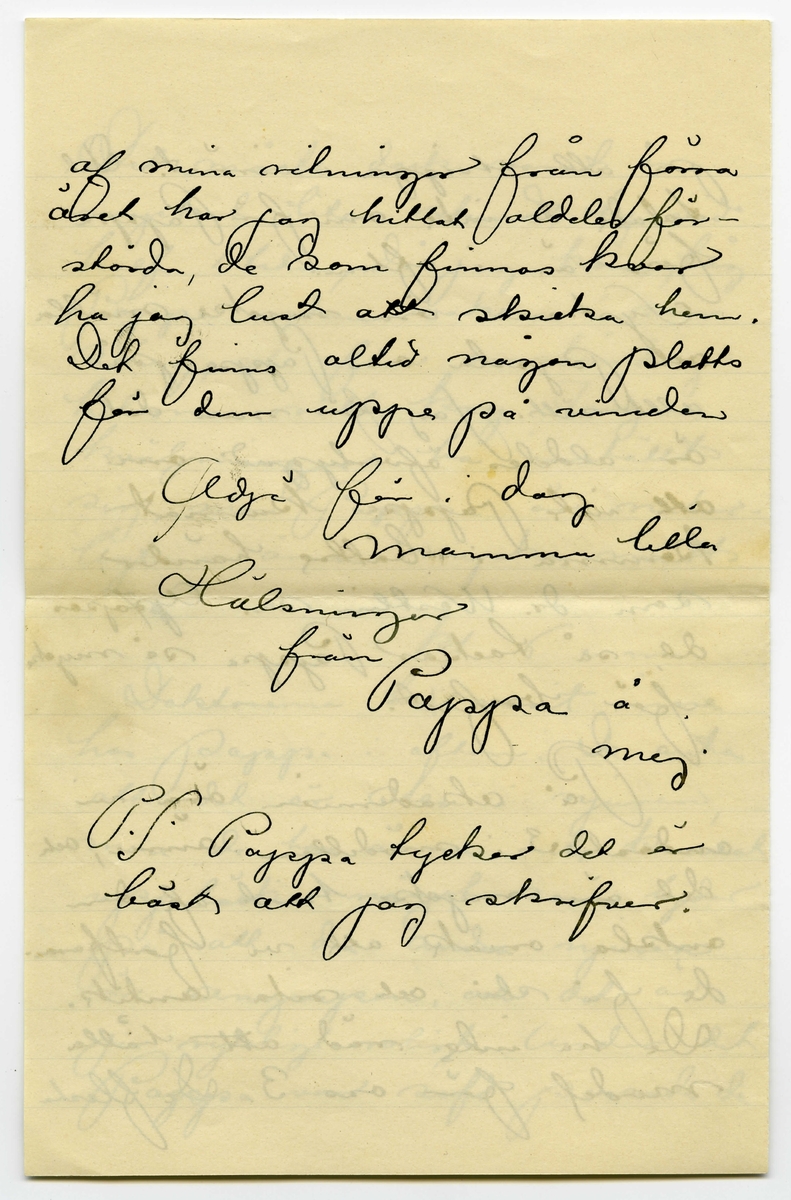 af mina ritningar från förra
året har jag hittat aldeles för-
störda, de som finnas kvar
ha jag lust att skicka hem.
Det finns altid någon platts
för dem uppe på vinden
Adjö för i dag
Mamma lilla
Hälsningar
från
Pappa å
mej.
P.S. Pappa tycker det är
bäst att jag skrifver.